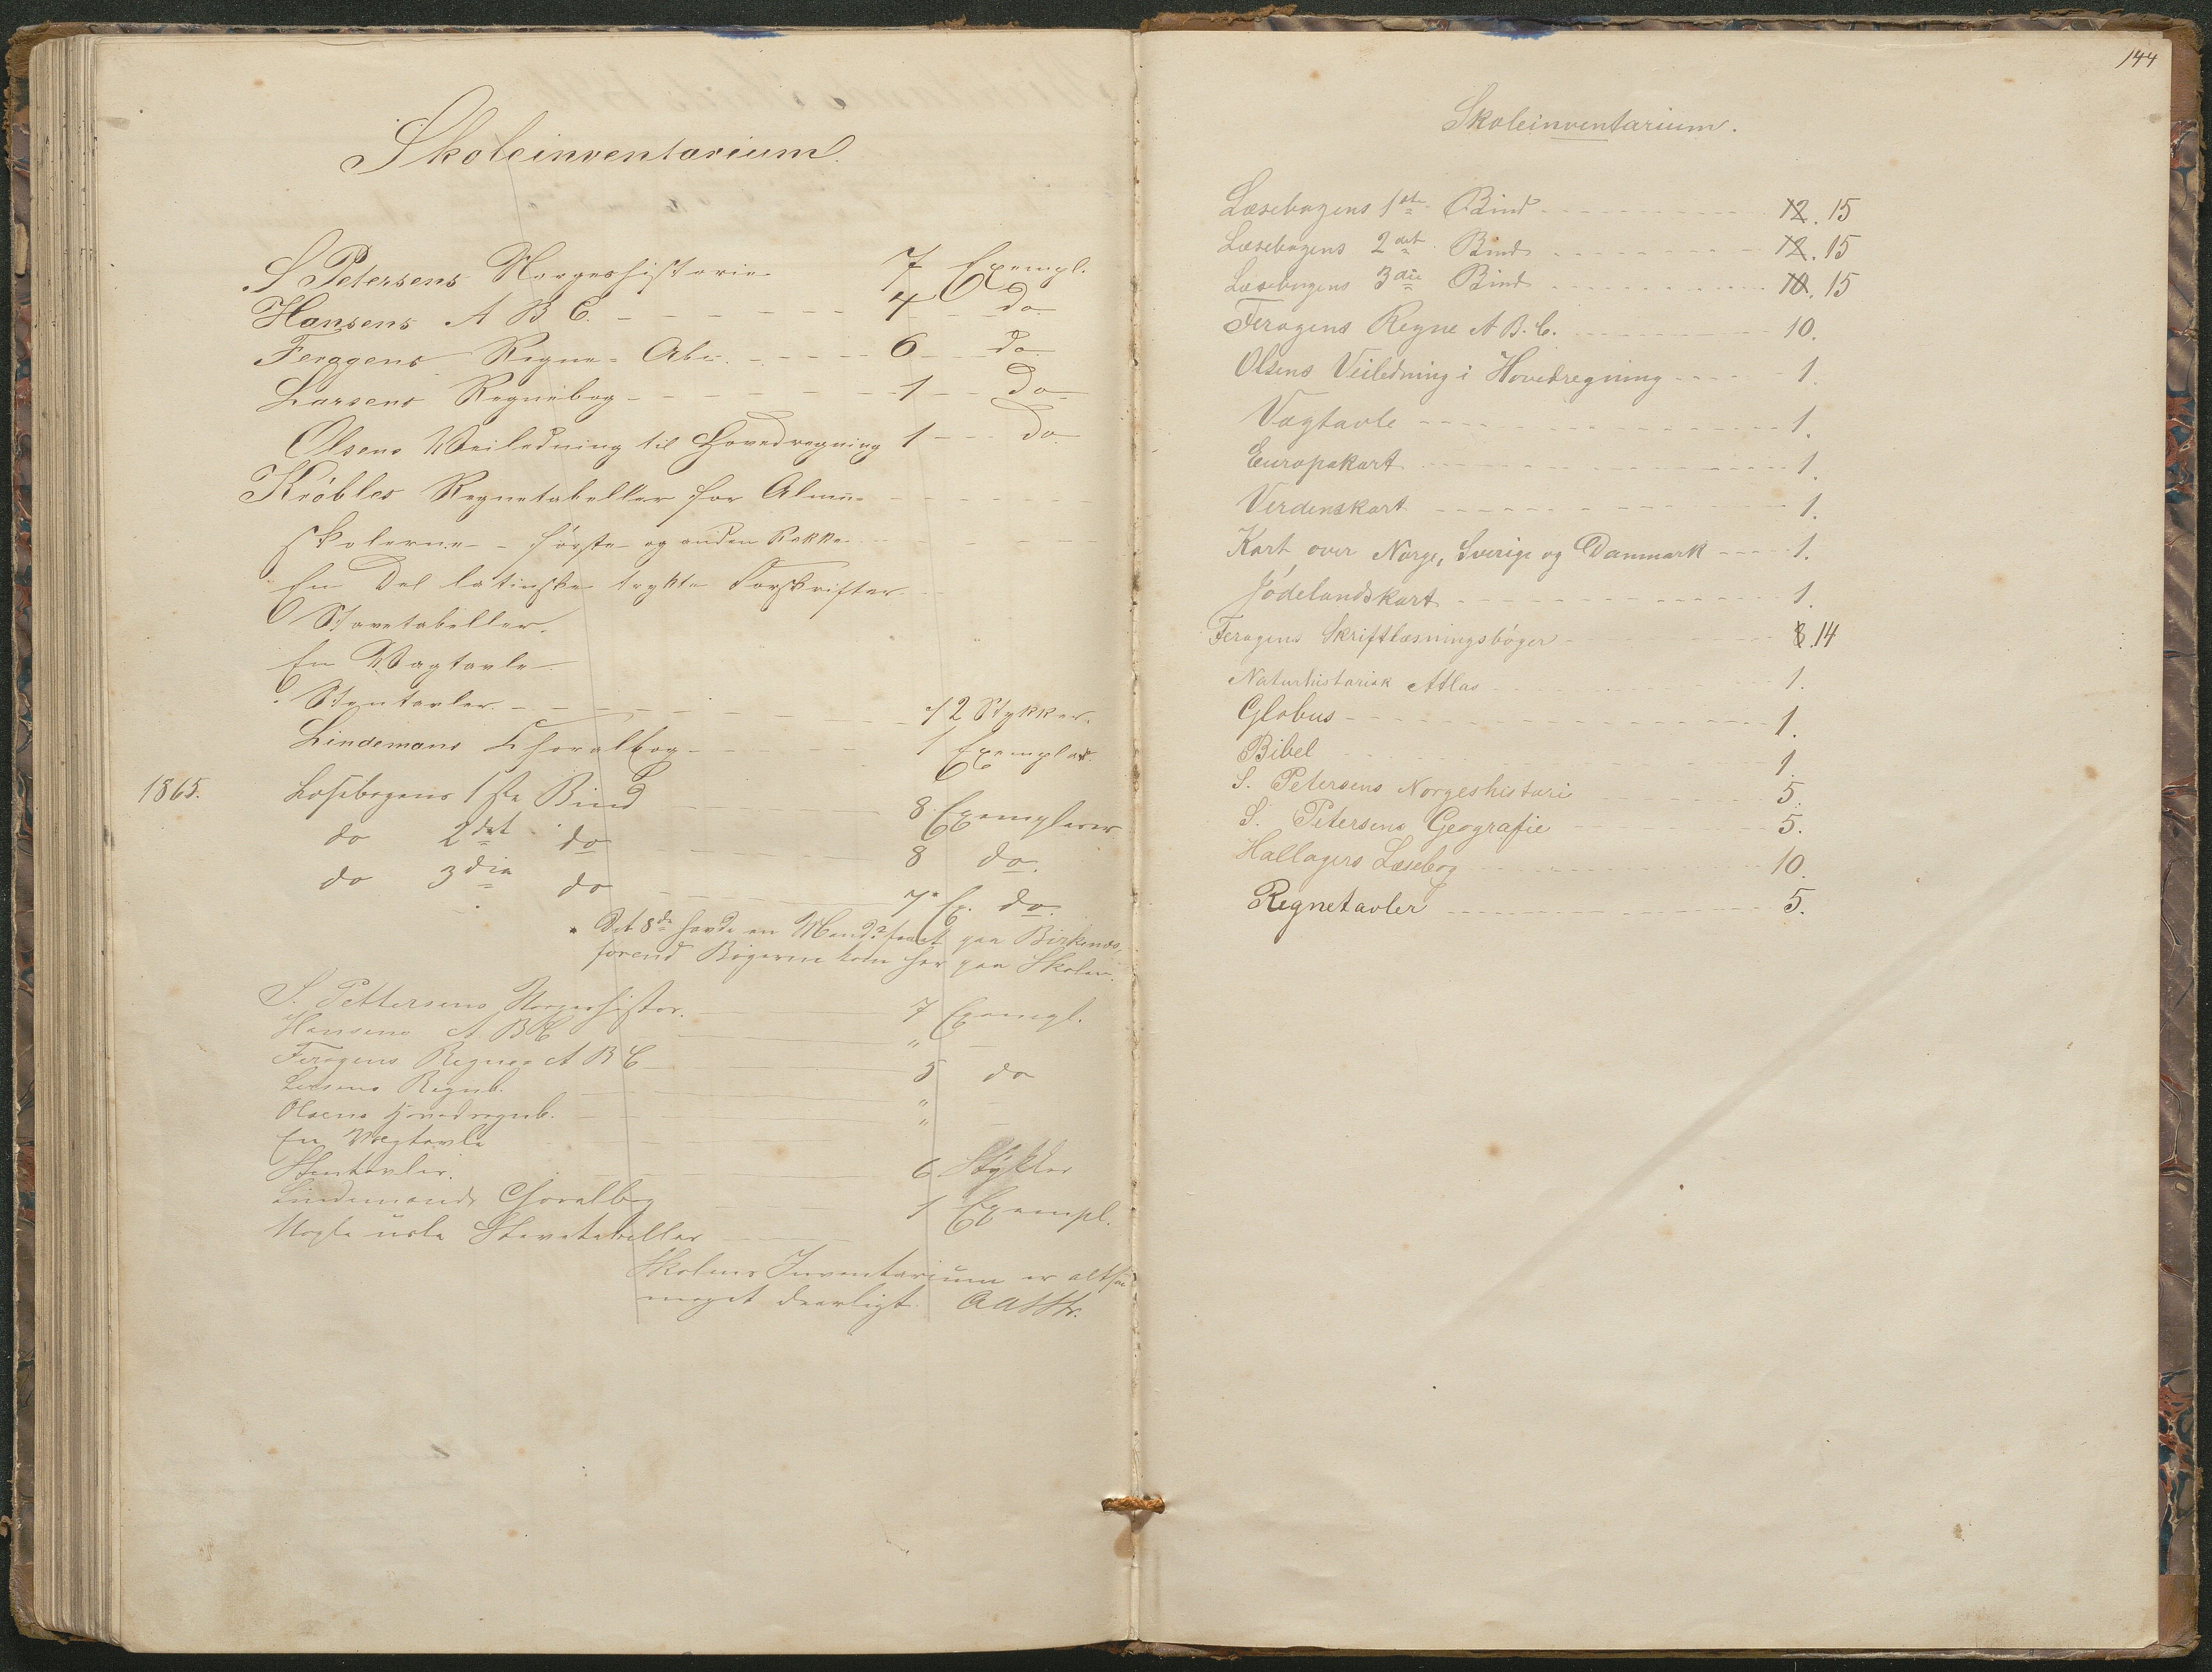 Skoleinventarium.
S Petersens Norgeshistorie 7 Exempl.
Hansens A B C. - - - - - - 4 - - do
Feragens Regne-Abc. - - - - 6 - - do
Larsens Regnebog - - - - - - - 1 - - do
Olsens Veiledning til Hovedregning 1 - - - do
Kröbles Regnetabeller for Almue-
skolerne - første og anden Række
En Del latinske trykte Forskrifter
Stavetabeller.
En Vægtavle
Stentavler. - - - - - - - 12 Stykker.
Lindemans Choralbog - - - - - 1 Exemplar.
1865. Læsebogens 1ste Bind 8 Exemplarer
do 2det do 8 do.
do 3die do 7* Ex. do.
* Det 8de havde en Mand faaet paa Birkenæs,
førend Bøgerne kom her paa Skolen.
S. Pettersens Norgeshistor. 7 Exempl.
Hansens A B C " -
Feragens Regne A B C 5 do
Larsens Regneb. " -
Olsens Hovedregneb. " -
En Vægtavle
Stentavler. 6 Stykker
Lindemands Choralbog 1 Exempl.
Nogle usle Stavetabeller
Skolens Inventarium er altsaa
meget daarligt.
144
Skoleinventarium.
Læsebogens 1ste Bind - - - - 12. 15
Læsebogens 2det Bind - - - - 12. 15
Læsebogens 3die Bind - - - - 10. 15
Feragens Regne A. B. C. - - - - 10.
Olsens Veiledning i Hovedregning - - - - 1.
Vægtavle - - - - 1.
Europakart - - - - 1.
Verdenskart - - - - 1.
Kart over Norge, Sverige og Danmark - - - - 1.
Jødelandskart - - - - 1.
Feragens Skriftlæsningsbøger - - - - 8. 14
Naturhistorisk Atlas - - - - 1.
Globus - - - - 1.
Bibel - - - - 1.
S. Petersens Norgeshistori - - - - 5.
S. Petersens Geografie - - - - 5.
Hallagers Læsebog - - - - 10.
Regnetavler - - - - 5.